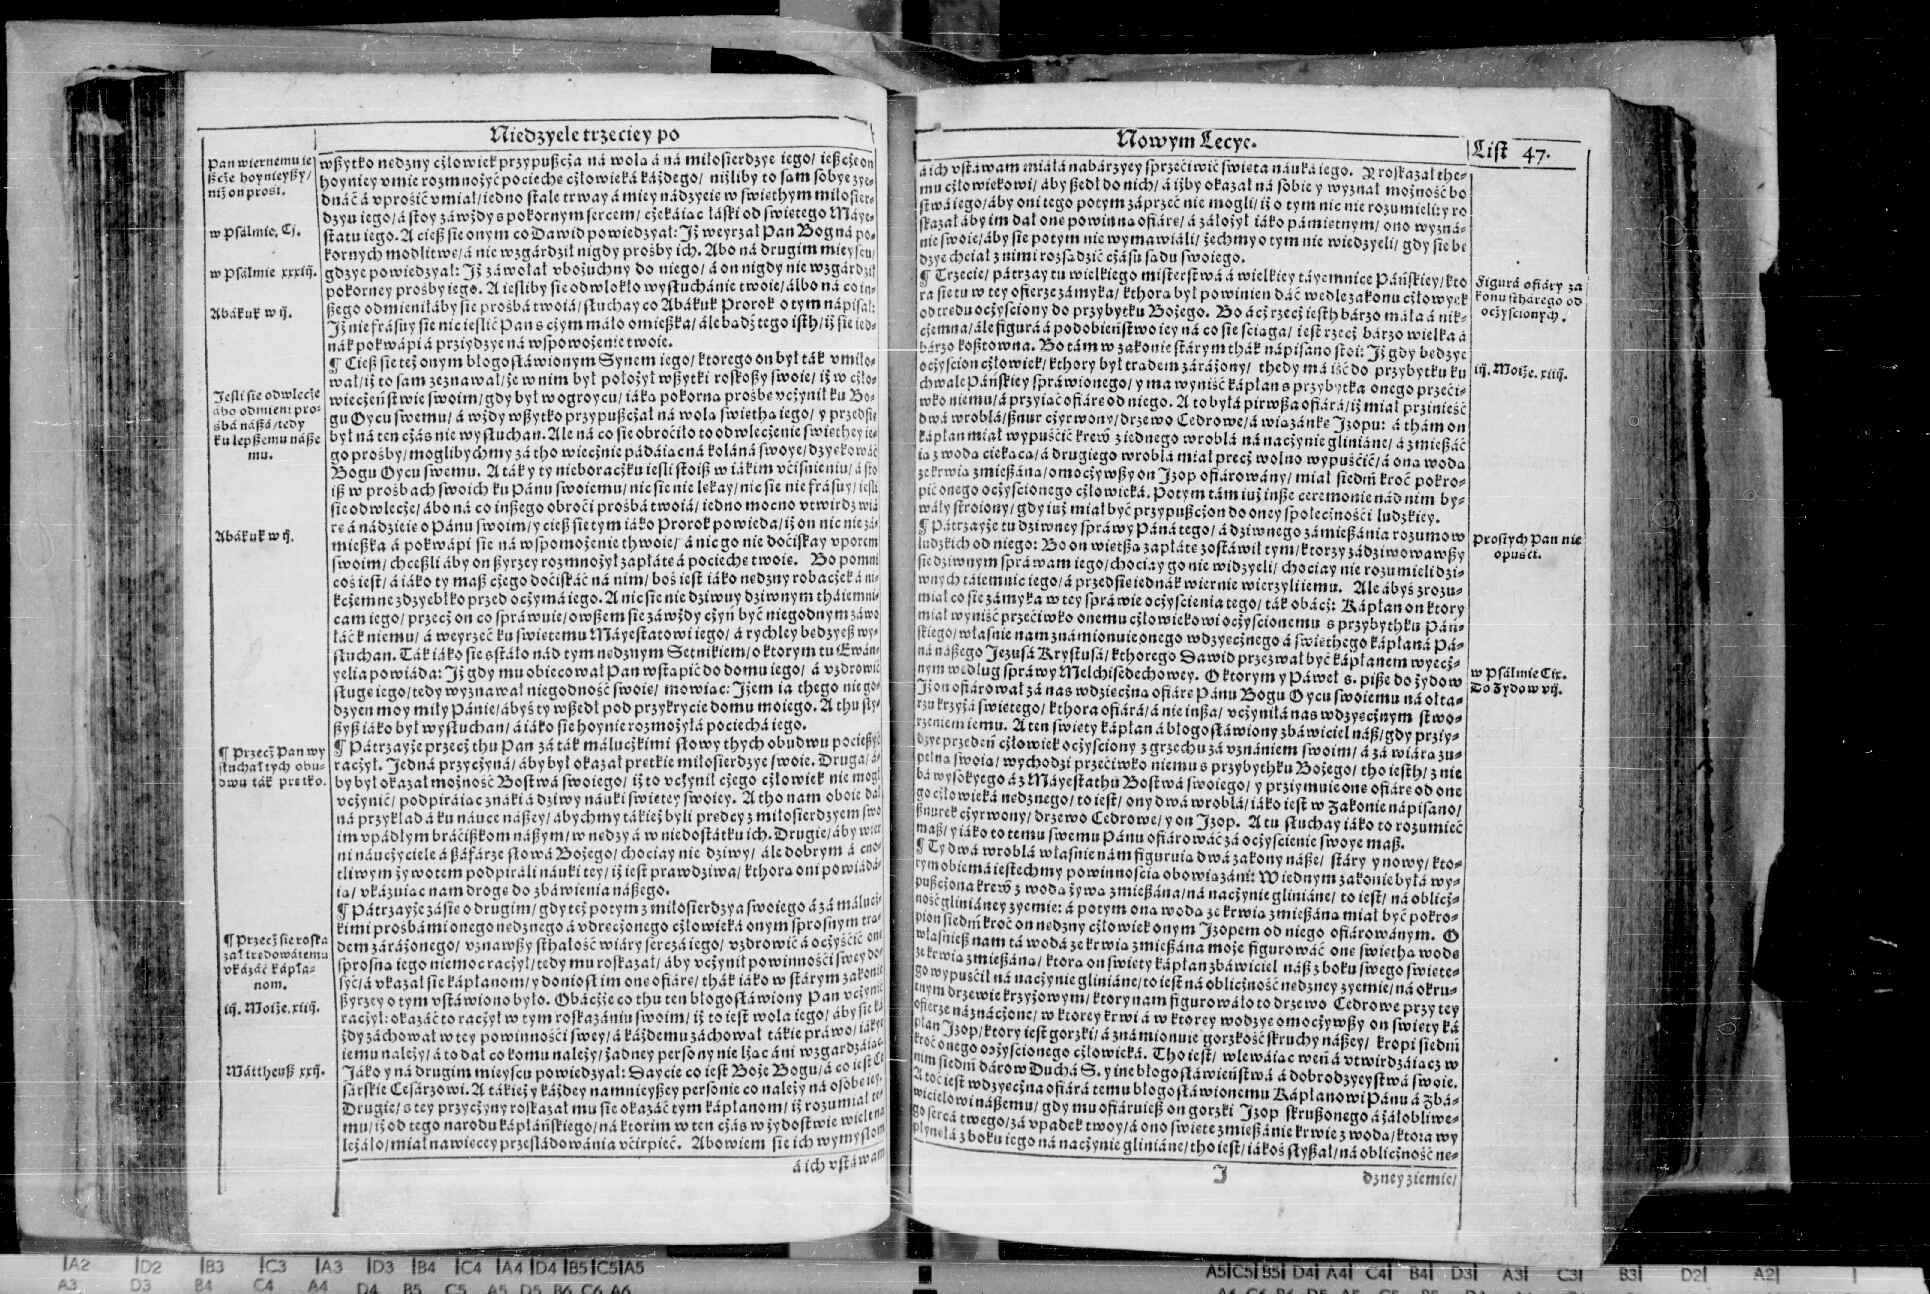 Niedzyele trzeciey po
Pan wiernemu ie
ßcże hoynieyßy/
niż on prosi.
w Psalmie, Cj.
w Psalmie xxxiij.
Abákuk w ij.
Jesli sie odwlecże
ábo odmieni pro-
śbá náßá/tedy
ku lepßemu náße
mu.
Abákuk w ij.
¶ Przecż Pan wy
słuchał tych obu-
dwu ták prętko.
¶ Przecż sie roska
zał trędowátemu
vkázáć kápła-
nom.
iij. Moiże. xiiij.
Máttheuß xxij.
wßytko nędzny cżłowiek przypußcża ná wolą á ná miłosierdzye iego/ ießcże on
hoyniey vmie rozmnożyć pociechę cżłowieká káżdego/ niżliby to sam sobye zye-
dnáć á vprosić vmiał/ iedno stale trway á miey nádzyeię w swięthym miłosier-
dzyu iego/ á stoy záwżdy s pokornym sercem/ cżekáiąc łáski od swiętego Máye-
statu iego. A cieß sie onym co Dawid powiedzyał: Jż weyrzał Pan Bog ná po-
kornych modlitwę/ á nie wzgárdził nigdy prośby ich. Abo ná drugim mieyscu/
gdzye powiedzyał: Jż záwołał vbożuchny do niego/ á on nigdy nie wzgárdził
pokorney prośby iego. A iesliby sie odwlokło wysłuchánie twoie/ álbo ná co in-
ßego odmieniłáby sie prośbá twoiá/ słuchay co Abákuk Prorok o tym nápisał:
Jż nie frásuy sie nic ieslić Pan s cżym máło omießka/ ále bądź tego isth/ iż sie ied-
nák pokwápi á przidzye ná wspomożenie twoie.
¶ Cieß sie też onym błogosłáwionym Synem iego/ ktorego on był ták vmiło-
wał/ iż to sam zeznawał/ że w nim był położył wßytki roskoßy swoie/ iż w cżło-
wiecżeństwie swoim/ gdy był w ogroycu/ iáką pokorną prośbę vcżynił ku Bo-
gu Oycu swemu/ á wżdy wßytko przypußcżał ná wolą swiethą iego/ y przedsię
był ná ten cżás nie wysłuchan. Ale ná co sie obrociło to odwlecżenie swięthey ie-
go prośby/ moglibychmy zá tho wiecżnie pádáiąc ná koláná swoye/ dzyękowáć
Bogu Oycu swemu. A ták y ty nieboracżku iesli stoiß w iákim vciśnieniu/ á sto
iß w prośbach swoich ku Pánu swoiemu/ nic sie nie lękay/ nic sie nie frásuy/ iesli
sie odwlecże/ ábo ná co inßego obroci prośbá twoiá/ iedno mocno vtwirdź wiá
rę á nádzieię o Pánu swoim/ y cieß sie tym iáko Prorok powieda/ iż on nic nie zá-
mießka á pokwápi sie ná wspomożenie thwoie/ á nic go nie dociskay vporem
swoim/ chceßli áby on ßyrzey rozmnożył zapłátę á pociechę twoię. Bo pomni
coś iest/ á iáko ty maß cżego dociskáć ná nim/ boś iest iáko nędzny robacżek á ni-
kcżemne zdzyebłko przed ocżymá iego. A nic sie nie dziwuy dziwnym tháiemni-
cam iego/ przecż on co spráwuie/ owßem sie záwżdy cżyń być niegodnym záwo
łáć k niemu/ á weyrzeć ku swiętemu Máyestatowi iego/ á rychley będzyeß wy-
słuchan. Ták iáko sie sstáło nád tym nędznym Setnikiem/ o ktorym tu Ewán-
yelia powiáda: Jż gdy mu obiecował Pan wstąpić do domu iego/ á vzdrowić
sługę iego/ tedy wyznawał niegodność swoię/ mowiąc: Jżem ia thego niego-
dzyen moy miły Pánie/ ábyś ty wßedł pod przykrycie domu moiego. A thu sły-
ßyß iáko był wysłuchan/ á iáko sie hoynie rozmożyłá pociechá iego.
¶ Pátrzayże przecż thu Pan zá ták málucżkimi słowy tych obudwu pocießyć
racżył. Jedná przycżyná/ áby był okazał prętkie miłosierdzye swoie. Druga/ á-
by był okazał możność Bostwá swoiego/ iż to vcżynił cżego cżłowiek nie mogł
vcżynić/ podpiráiąc znáki á dziwy náuki swiętey swoiey. A tho nam oboie dał
ná przykład á ku náuce náßey/ ábychmy tákież byli prędcy z miłosierdzyem swo
im vpádłym bráćißkom náßym/ w nędzy á w niedostátku ich. Drugie/ áby wier
ni náucżyciele á ßáfárze słowá Bożego/ chociay nie dziwy/ ále dobrym á cno-
tliwym żywotem podpiráli náuki tey/ iż iest prawdziwa/ kthorą oni powiádá-
ią/ vkázuiąc nam drogę do zbáwienia náßego.
¶ Pátrzayże zásię o drugim/ gdy też potym z miłosierdzya swoiego á zá málucż-
kimi prośbámi onego nędznego á vdręcżonego cżłowieká onym sprosnym trą-
dem záráżonego/ vznawßy sthałość wiáry sercá iego/ vzdrowić á ocżyścić onę
sprosną iego niemoc racżył/ tedy mu roskazał/ áby vcżynił powinności swey do-
syć/ á vkazał sie kápłanom/ y doniosł im onę ofiárę/ thák iáko w stárym zakonie
ßyrzey o tym vstáwiono było. Obácżże co thu ten błogosłáwiony Pan vcżynić
racżył: okazáć to racżył w tym roskazániu swoim/ iż to iest wola iego/ áby sie ká
żdy záchował w tey powinności swey/ á káżdemu záchował tákie práwo/ iákie
iemu należy/ á to dał co komu należy/ żadney persony nie lżąc áni wzgardzáiąc.
Jáko y ná drugim mieyscu powiedzyał: Daycie co iest Boże Bogu/ á co iest Ce
sárskie Cesárzowi. A tákież y káżdey namnieyßey personie co należy ná osobę iey.
Drugie/ s tey przycżyny roskazał mu sie okazáć tym kápłanom/ iż rozumiał te-
mu/ iż od tego narodu kápłáńskiego/ ná ktorim w ten cżás w żydostwie wiele ná
leżáło/ miał nawięcey prześládowánia vcirpieć. Abowiem sie ich wymysłom
á ich vstáwam
Nowym Lecye.
List 47.
á ich vstáwam miáłá nabárzyey sprzeciwić święta náuká iego. Y roskazał the-
mu cżłowiekowi/ áby ßedł do nich/ á iżby okazał ná sobie y wyznał możność bo
stwá iego/ áby oni tego potym záprzeć nie mogli/ iż o tym nic nie rozumieli: y ro
skazał áby im dał onę powinną ofiárę/ á záłożył iáko pámiętnym/ ono wyzná-
nie swoie/ áby sie potym nie wymawiáli/ żechmy o tym nie wiedzyeli/ gdy sie bę
dzye chciał z nimi rozsądzić cżásu sądu swoiego.
¶ Trzecie/ pátrzay tu wielkiego misterstwá á wielkiey táyemnice Páńskiey/ kto
ra sie tu w tey ofierze zámyka/ kthorą był powinien dáć wedle zakonu cżłowyek
od trędu ocżyściony do przybytku Bożego. Bo ácż rzecż iesth bárzo máła á nik-
cżemna/ ále figurá á podobieństwo iey ná co sie ściąga/ iest rzecż bárzo wielka á
bárzo koßtowna. Bo tám w zakonie stárym thák nápisano stoi: Jż gdy będzye
ocżyścion cżłowiek/ kthory był trądem záráżony/ thedy ma iść do przybytku ku
chwale Páńskiey spráwionego/ y ma wyniść kápłan s przybytká onego przeci-
wko niemu/ á przyiąć ofiárę od niego. A to byłá pirwßa ofiárá/ iż miał przinieść
dwá wroblá/ ßnur cżyrwony/ drzewo Cedrowe/ á wiązánkę Jzopu: á thám on
kápłan miał wypuścić krew z iednego wroblá ná nacżynie gliniáne/ á zmießáć
ią z wodą ciekącą/ á drugiego wroblá miał precż wolno wypuścić/ á oną wodą
ze krwią zmießáną/ omocżywßy on Jzop ofiárowány/ miał siedm kroć pokro-
pić onego ocżyścionego cżłowieká. Potym tám iuż inße ceremonie nád nim by-
wáły stroiony/ gdy iuż miał być przypußcżon do oney społecżności ludzkiey.
¶ Pátrzayże tu dziwney spráwy Páná tego/ á dziwnego zámießánia rozumow
ludzkich od niego: Bo on więtßą zapłátę zostáwił tym/ ktorzy zádziwowawßy
sie dziwnym spráwam iego/ chociay go nie widzyeli/ chociay nie rozumieli dzi-
wnych táiemnic iego/ á przedsię iednák wiernie wierzyli iemu. Ale ábyś zrozu-
miał co sie zámyka w tey spráwie ocżyścienia tego/ ták obácż: Kápłan on ktory
miał wyniść przeciwko onemu cżłowiekowi ocżyścionemu s przybythku Páń-
skiego/ własnie nam známionuie onego wdzyęcżnego á swięthego kápłaná Pá-
ná náßego Jezusá Krystusá/ kthorego Dawid przezwał być kápłanem wyecż-
nym według spráwy Melchisedechowey. O ktorym y Páweł s. piße do żydow
Jż on ofiárował zá nas wdziecżną ofiárę Pánu Bogu Oycu swoiemu ná ołtá-
rzu krzyżá swiętego/ kthora ofiárá/ á nie inßa/ vcżyniłá nas wdzyęcżnym stwo-
rzeniem iemu. A ten swięty kápłan á błogosłáwiony zbáwiciel náß/ gdy przi̇y-
dzye przedeń cżłowiek ocżyściony z grzechu zá vznániem swoim/ á zá wiárą zu-
pełną swoią/ wychodzi przeciwko niemu s przybythku Bożego/ tho iesth/ z nie
bá wysokyego á z Máyestathu Bostwá swoiego/ y przyimuie onę ofiárę od one
go cżłowieká nędznego/ to iest/ ony dwá wroblá/ iáko iest w Zakonie nápisano/
ßnurek cżyrwony/ drzewo Cedrowe/ y on Jzop. A tu słuchay iáko to rozumieć
maß/ y iáko to temu swemu Pánu ofiárowáć zá ocżyścienie swoye maß.
¶ Ty dwá wroblá własnie nam figuruią dwá zakony náße/ stáry y nowy/ kto-
rym obiemá iestechmy powinnością obowiązáni: W iednym zakonie byłá wy-
pußcżona krew z wodą żywą zmießána/ ná nacżynie gliniáne/ to iest/ ná oblicż-
ność gliniáney zyemie: á potym oną wodą ze krwią zmießáną miał być pokro-
pion siedm kroć on nędzny cżłowiek onym Jzopem od niego ofiárowánym. O
własnież nam tá wodá ze krwią zmießána może figurowáć onę swięthą wodę
ze krwią zmießáną/ ktorą on swięty kápłan zbáwiciel náß z boku swego swięte-
go wypuścił ná nacżynie gliniáne/ to iest ná oblicżność nędzney zyemie/ ná okru-
tnym drzewie krzyżowym/ ktory nam figurowáło to drzewo Cedrowe przy tey
ofierze náznácżone/ w ktorey krwi á w ktorey wodzye omocżywßy on swięty ká
płan Jzop/ ktory iest gorzki/ á známionuie gorzkość skruchy náßey/ kropi siedm
kroć onego ocżyścionego cżłowieká. Tho iest/ wlewáiąc weń á vtwirdzáiąc w
nim siedm dárow Duchá S. y ine błogosłáwieństwá á dobrodzyeystwá swoie.
A toć iest wdzyęcżna ofiárá temu błogosłáwionemu Kápłanowi Pánu á Zbá-
wicielowi náßemu/ gdy mu ofiáruieß on gorzki Jzop skrußonego á żáłobliwe-
go sercá twego/ zá vpadek twoy/ á ono swięte zmießánie krwie z wodą/ ktora wy
płynęłá z boku iego ná nacżynie gliniáne/ tho iest/ iákoś słyßał/ ná oblicżność nę-
J
dzney ziemie/
Figurá ofiáry za
konu sthárego od
ocżyścionych.
iij. Moiże. xiiij.
Prostych Pan nie
opuści.
w Psálmie Cix.
Do Żydow vij.